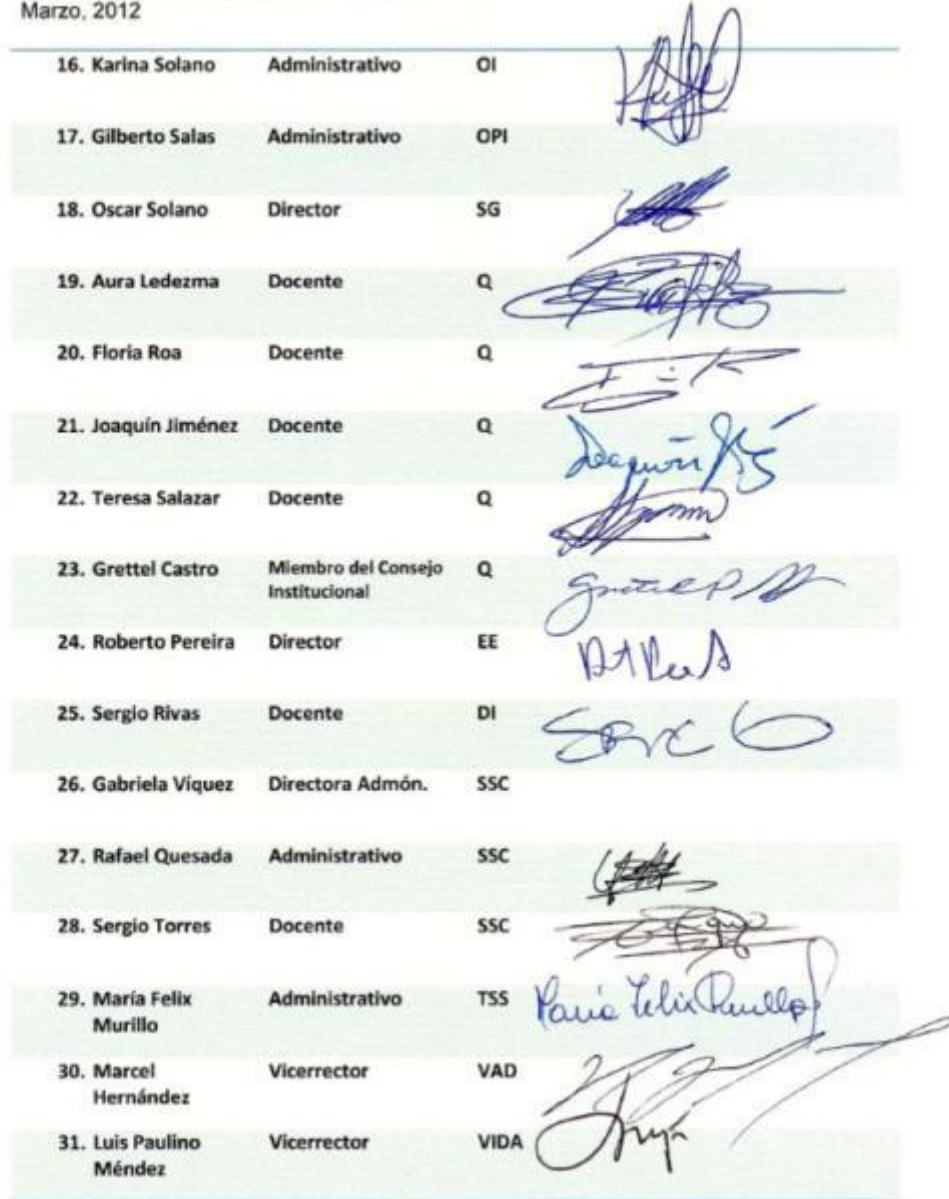 Marzo, 2012
16. Karina Solano Administrativo OI
17. Gilberto Salas Administrativo OPI
18. Oscar Solano Director SG
19. Aura Ledezma Docente Q
20. Floria Roa Docente Q
21. Joaquín Jiménez Docente Q
Joaquín
22. Teresa Salazar Docente Q
23. Grettel Castro Miembro del Consejo Q
Institucional
24. Roberto Pereira Director EE
25. Sergio Rivas Docente DI
26. Gabriela Víquez Directora Admón. SSC
27. Rafael Quesada Administrativo SSC
28. Sergio Torres Docente SSC
29. María Felix Administrativo TSS María Felix Murillo
Murillo
30. Marcel Vicerrector VAD
Hernández
31. Luis Paulino Vicerrector VIDA
Méndez